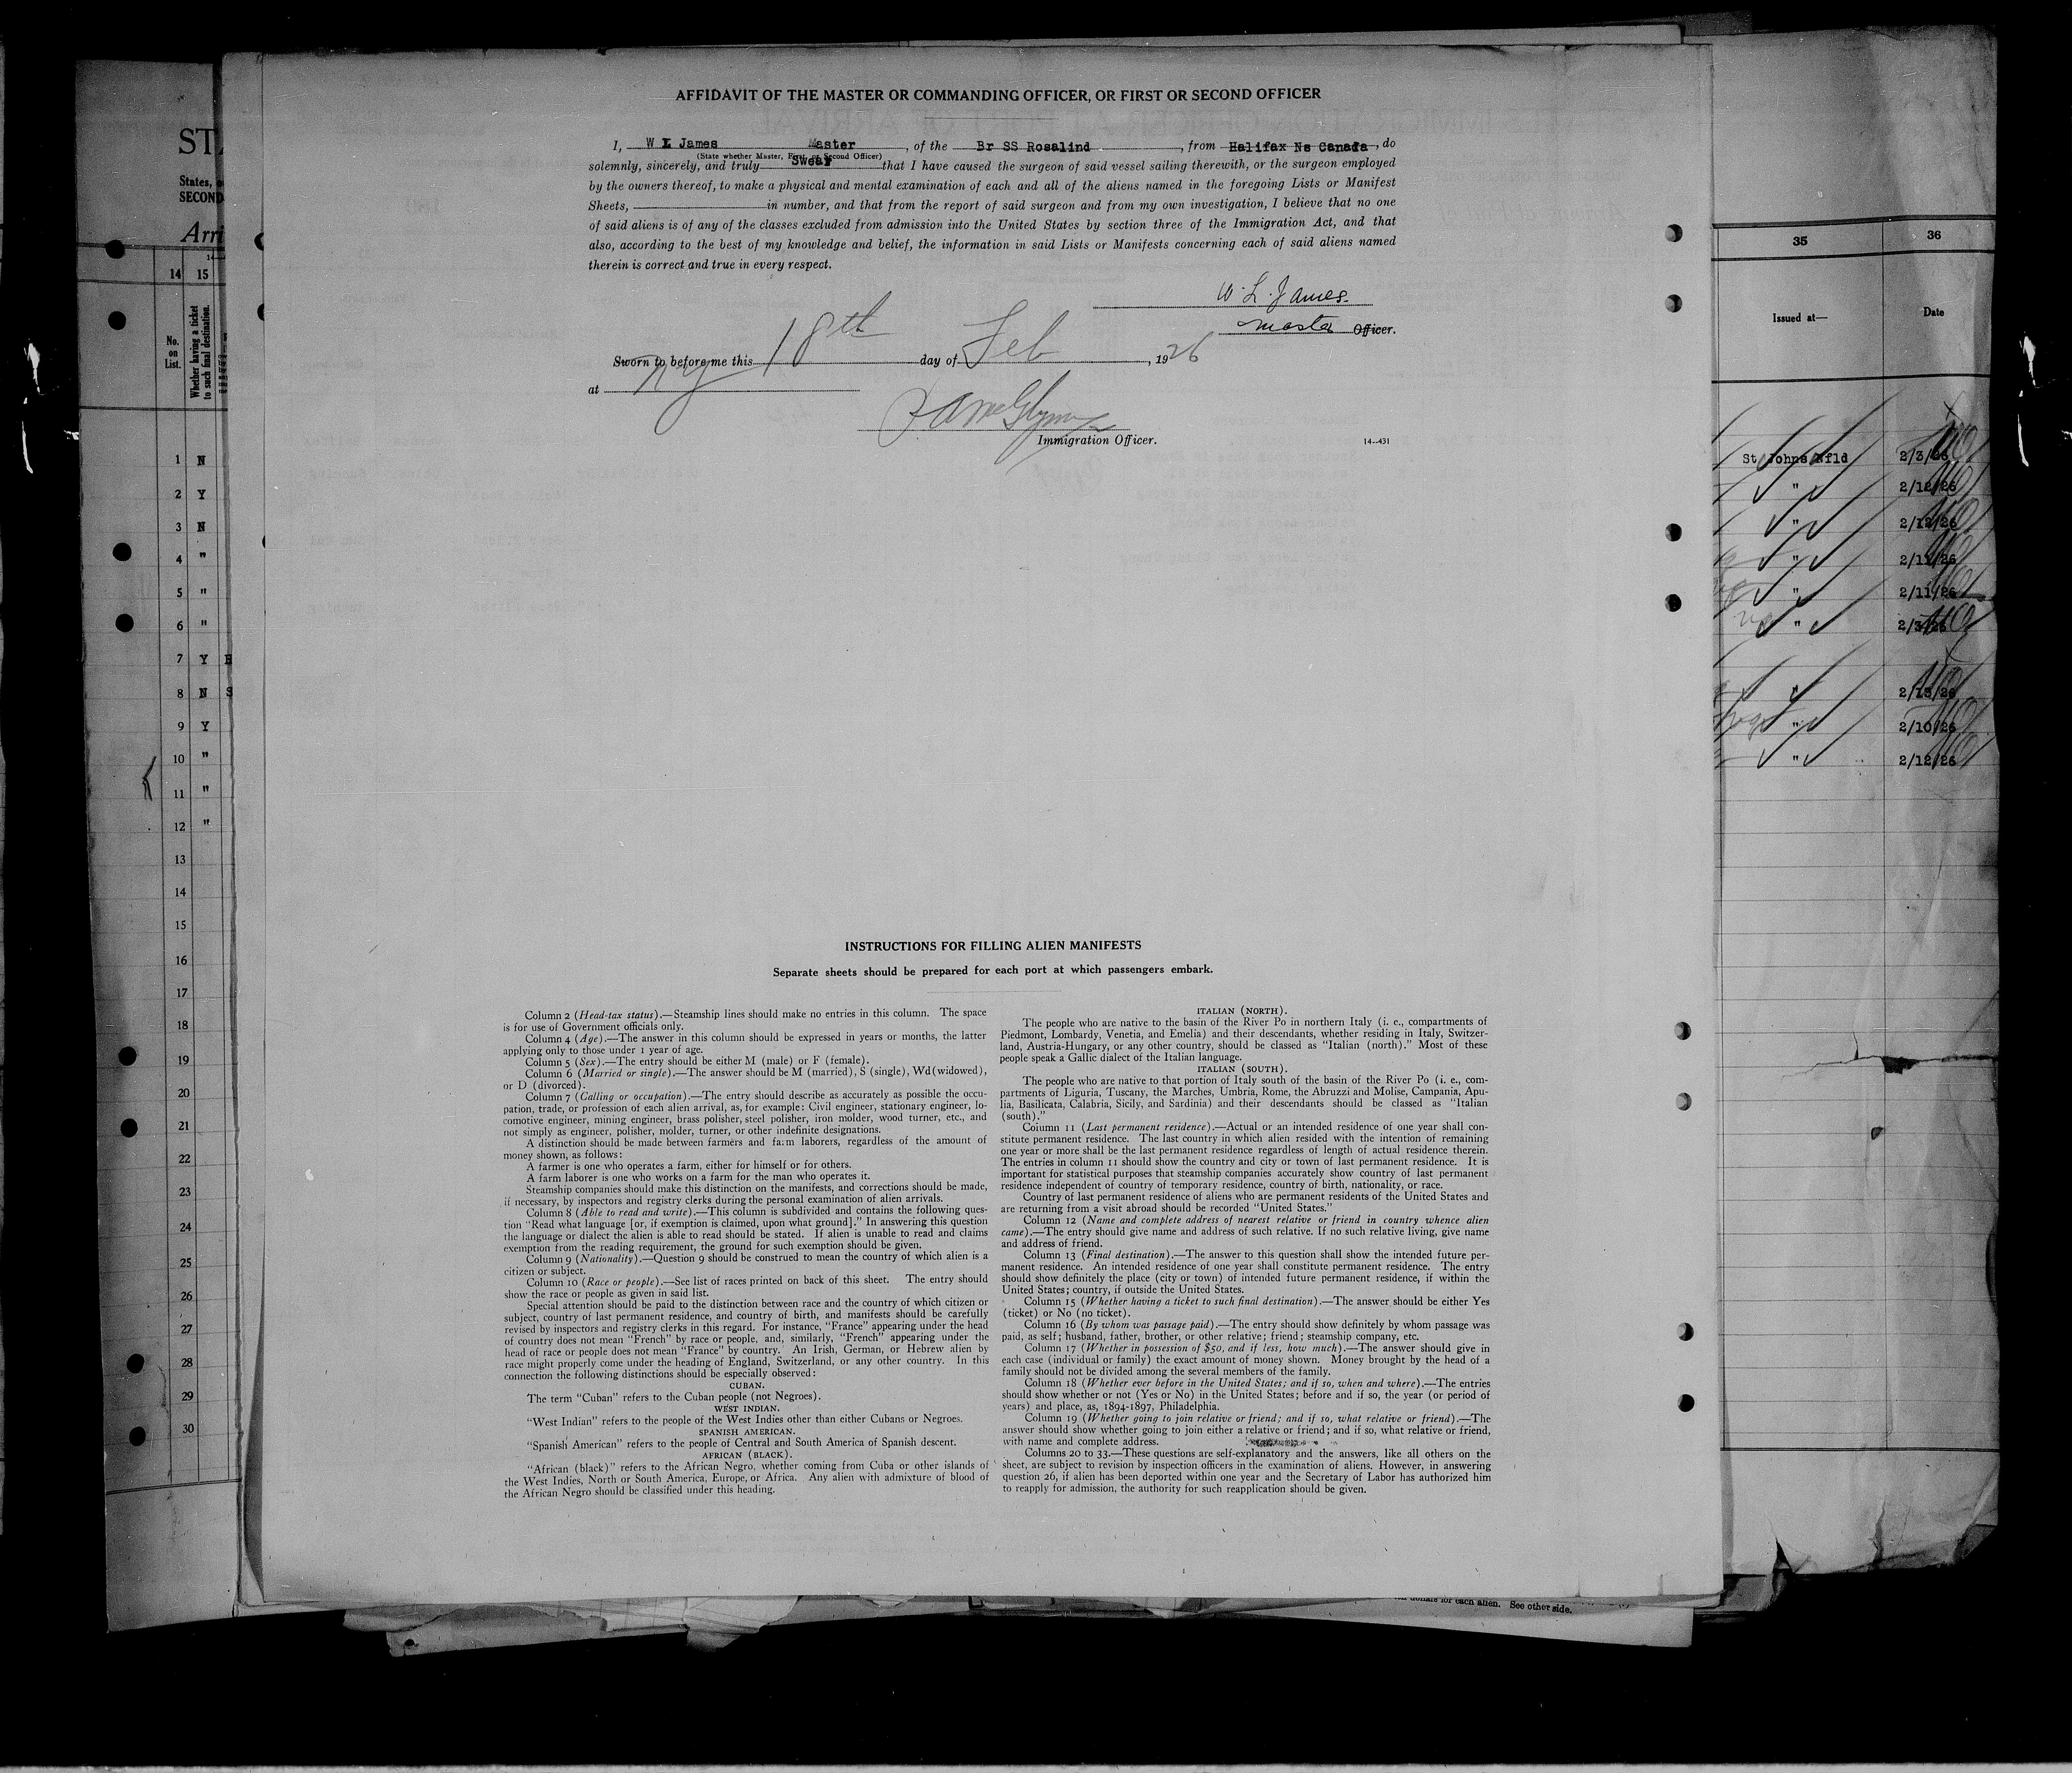 AFFIDAVIT OF THE MASTER OR COMMANDING OFFICER, OR FIRST OR SECOND OFFICER
I, W L James Master, of the Br SS Rosalind, from Halifax Ns Canada, do
(State whether Master, First, or Second Officer)
solemnly, sincerely, and truly Swear that I have caused the surgeon of said vessel sailing therewith, or the surgeon employed
by the owners thereof, to make a physical and mental examination of each and all of the aliens named in the foregoing Lists or Manifest
Sheets, in number, and that from the report of said surgeon and from my own investigation, I believe that no one
of said aliens is of any of the classes excluded from admission into the United States by section three of the Immigration Act, and that
also, according to the best of my knowledge and belief, the information in said Lists or Manifests concerning each of said aliens named
therein is correct and true in every respect.
W. L. James.
Master Officer.
Sworn to before me this 18th day of Feb, 1926
at NY
Immigration Officer.
14—431
INSTRUCTIONS FOR FILLING ALIEN MANIFESTS
Separate sheets should be prepared for each port at which passengers embark.
Column 2 (Head-tax status).—Steamship lines should make no entries in this column. The space
is for use of Government officials only.
Column 4 (Age).—The answer in this column should be expressed in years or months, the latter
applying only to those under 1 year of age.
Column 5 (Sex).—The entry should be either M (male) or F (female).
Column 6 (Married or single).—The answer should be M (married), S (single), Wd(widowed),
or D (divorced).
Column 7 (Calling or occupation).—The entry should describe as accurately as possible the occu-
pation, trade, or profession of each alien arrival, as, for example: Civil engineer, stationary engineer, lo-
comotive engineer, mining engineer, brass polisher, steel polisher, iron molder, wood turner, etc., and
not simply as engineer, polisher, molder, turner, or other indefinite designations.
A distinction should be made between farmers and farm laborers, regardless of the amount of
money shown, as follows:
A farmer is one who operates a farm, either for himself or for others.
A farm laborer is one who works on a farm for the man who operates it.
Steamship companies should make this distinction on the manifests, and corrections should be made,
if necessary, by inspectors and registry clerks during the personal examination of alien arrivals.
Column 8 (Able to read and write).—This column is subdivided and contains the following ques-
tion "Read what language [or, if exemption is claimed, upon what ground]." In answering this question
the language or dialect the alien is able to read should be stated. If alien is unable to read and claims
exemption from the reading requirement, the ground for such exemption should be given.
Column 9 (Nationality).—Question 9 should be construed to mean the country of which alien is a
citizen or subject.
Column 10 (Race or people).—See list of races printed on back of this sheet. The entry should
show the race or people as given in said list.
Special attention should be paid to the distinction between race and the country of which citizen or
subject, country of last permanent residence, and country of birth, and manifests should be carefully
revised by inspectors and registry clerks in this regard. For instance, "France" appearing under the head
of country does not mean "French" by race or people, and, similarly, "French" appearing under the
head of race or people does not mean "France" by country. An Irish, German, or Hebrew alien by
race might properly come under the heading of England, Switzerland, or any other country. In this
connection the following distinctions should be especially observed:
CUBAN.
The term "Cuban" refers to the Cuban people (not Negroes).
WEST INDIAN.
"West Indian" refers to the people of the West Indies other than either Cubans or Negroes.
SPANISH AMERICAN.
"Spanish American" refers to the people of Central and South America of Spanish descent.
AFRICAN (BLACK).
"African (black)" refers to the African Negro, whether coming from Cuba or other islands of
the West Indies, North or South America, Europe, or Africa. Any alien with admixture of blood of
the African Negro should be classified under this heading.
ITALIAN (NORTH).
The people who are native to the basin of the River Po in northern Italy (i. e., compartments of
Piedmont, Lombardy, Venetia, and Emelia) and their descendants, whether residing in Italy, Switzer-
land, Austria-Hungary, or any other country, should be classed as "Italian (north)." Most of these
people speak a Gallic dialect of the Italian language.
ITALIAN (SOUTH).
The people who are native to that portion of Italy south of the basin of the River Po (i. e., com-
partments of Liguria, Tuscany, the Marches, Umbria, Rome, the Abruzzi and Molise, Campania, Apu-
lia, Basilicata, Calabria, Sicily, and Sardinia) and their descendants should be classed as "Italian
(south)."
Column 11 (Last permanent residence).—Actual or an intended residence of one year shall con-
stitute permanent residence. The last country in which alien resided with the intention of remaining
one year or more shall be the last permanent residence regardless of length of actual residence therein.
The entries in column 11 should show the country and city or town of last permanent residence. It is
important for statistical purposes that steamship companies accurately show country of last permanent
residence independent of country of temporary residence, country of birth, nationality, or race.
Country of last permanent residence of aliens who are permanent residents of the United States and
are returning from a visit abroad should be recorded "United States."
Column 12 (Name and complete address of nearest relative or friend in country whence alien
came).—The entry should give name and address of such relative. If no such relative living, give name
and address of friend.
Column 13 (Final destination).—The answer to this question shall show the intended future per-
manent residence. An intended residence of one year shall constitute permanent residence. The entry
should show definitely the place (city or town) of intended future permanent residence, if within the
United States; country, if outside the United States.
Column 15 (Whether having a ticket to such final destination).—The answer should be either Yes
(ticket) or No (no ticket).
Column 16 (By whom was passage paid).—The entry should show definitely by whom passage was
paid, as self; husband, father, brother, or other relative; friend; steamship company, etc.
Column 17 (Whether in possession of $50, and if less, how much).—The answer should give in
each case (individual or family) the exact amount of money shown. Money brought by the head of a
family should not be divided among the several members of the family.
Column 18 (Whether ever before in the United States; and if so, when and where).—The entries
should show whether or not (Yes or No) in the United States; before and if so, the year (or period of
years) and place, as, 1894-1897, Philadelphia.
Column 19 (Whether going to join relative or friend; and if so, what relative or friend).—The
answer should show whether going to join either a relative or friend; and if so, what relative or friend,
with name and complete address.
Columns 20 to 33.—These questions are self-explanatory and the answers, like all others on the
sheet, are subject to revision by inspection officers in the examination of aliens. However, in answering
question 26, if alien has been deported within one year and the Secretary of Labor has authorized him
to reapply for admission, the authority for such reapplication should be given.
States,
SECOND
Arri
14 15
No. on List.
Whether having a ticket to such final destination.
1 N
2 Y
3 N
4 "
5 "
6 "
7 Y
8 N S
9 Y
10 "
11 "
12 "
13
14
15
16
17
18
19
20
21
22
23
24
25
26
27
28
29
30
35 36
Issued at— Date
St Johns Nfld 2/3/26
" 2/12/26
" 2/12/26
" 2/11/26
" 2/11/26
" 2/3/26
" 2/13/26
" 2/10/26
" 2/12/26
for each alien. See other side.